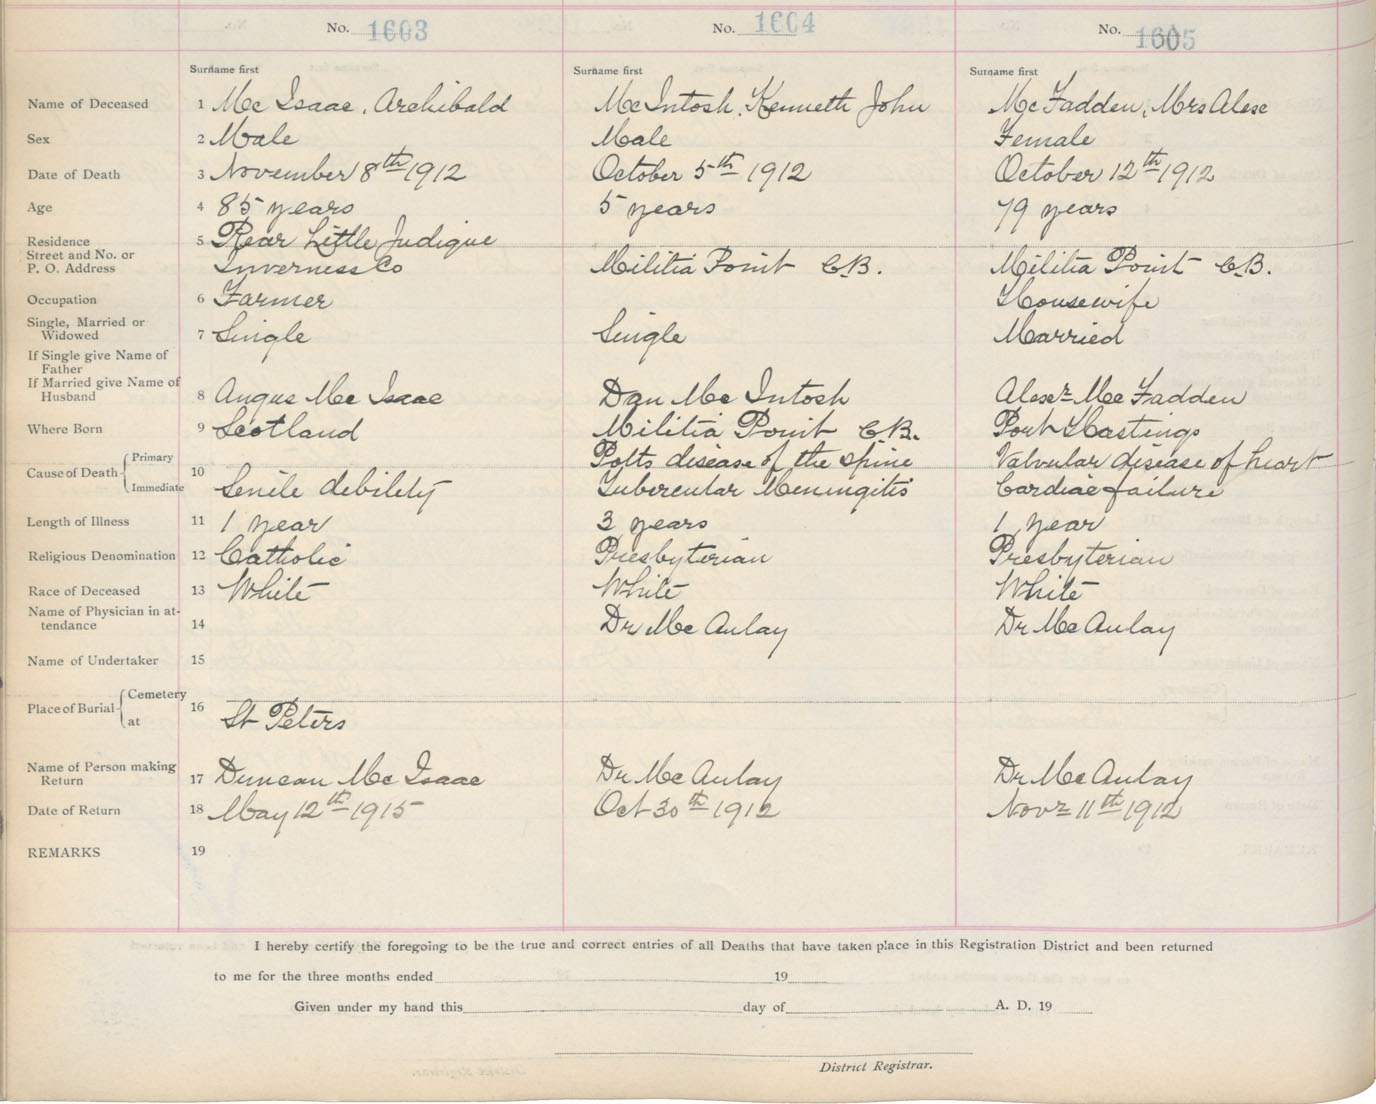 No. 1603 No. 1604 No. 1605
Surname first Surname first Surname first
Name of Deceased 1 Mc Isaac, Archibald McIntosh, Kenneth John McFadden, Mrs Alex
Sex 2 Male Male Female
Date of Death 3 November 8th 1912 October 5th 1912 October 12th 1912
Age 4 85 years 5 years 79 years
Residence 5 Rear Little Judique
Street and No. or
P. O. Address Inverness Co Militia Point C.B. Militia Point C.B.
Occupation 6 Farmer Housewife
Single, Married or
Widowed 7 Single Single Married
If Single give Name of
Father
If Married give Name of
Husband 8 Angus Mc Isaac Dan Mc Intosh Alexr Mc Fadden
Where Born 9 Scotland Militia Point C.B. Port Hastings
Cause of Death Primary Potts disease of the spine Valvular disease of heart
10 Immediate Senile debility Tubercular Meningitis Cardiac failure
Length of Illness 11 1 year 3 years 1 year
Religious Denomination 12 Catholic Presbyterian Presbyterian
Race of Deceased 13 White White White
Name of Physician in at-
tendance 14 Dr McAulay Dr McAulay
Name of Undertaker 15
Place of Burial Cemetery
at 16 St Peters
Name of Person making
Return 17 Duncan Mc Isaac Dr McAulay Dr McAulay
Date of Return 18 May 12th 1915 Oct 30th 1912 Novr 11th 1912
REMARKS 19
I hereby certify the foregoing to be the true and correct entries of all Deaths that have taken place in this Registration District and been returned
to me for the three months ended 19
Given under my hand this day of A. D. 19
District Registrar.